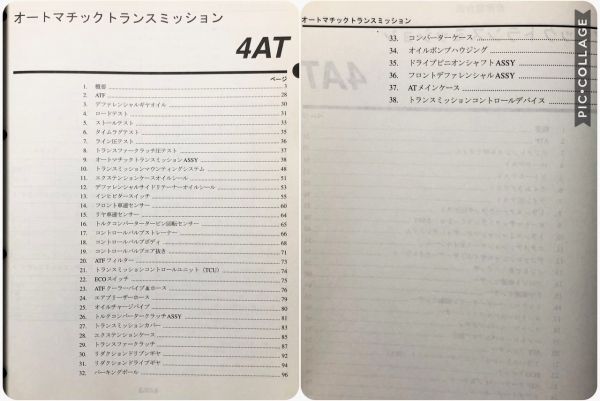 オートマチックトランスミッション
4AT
ページ
1. 概要 3
2. ATF 28
3. デファレンシャルギヤオイル 30
4. ロードテスト 31
5. ストールテスト 33
6. タイムラグテスト 35
7. ライン圧テスト 36
8. トランスファークラッチ圧テスト 37
9. オートマチックトランスミッションASSY 38
10. トランスミッションマウンティングシステム 48
11. エクステンションケースオイルシール 51
12. デファレンシャルサイドリテーナーオイルシール 53
13. インヒビタースイッチ 55
14. フロント車速センサー 60
15. リヤ車速センサー 64
16. トルクコンバータータービン回転センサー 65
17. コントロールバルブストレーナー 66
18. コントロールバルブボディ 68
19. コントロールバルブエア抜き 71
20. ATFフィルター 73
21. トランスミッションコントロールユニット (TCU) 74
22. ECOスイッチ 75
23. ATFクーラーパイプ&ホース 76
24. エアブリーザーホース 79
25. オイルチャージパイプ 80
26. トルクコンバータークラッチASSY 81
27. トランスミッションカバー 83
28. エクステンションケース 85
29. トランスファークラッチ 87
30. リダクションドリブンギヤ 92
31. リダクションドライブギヤ 94
32. パーキングポール 96
オートマチックトランスミッション
33. コンバーターケース
34. オイルポンプハウジング
35. ドライブピニオンシャフトASSY
36. フロントデファレンシャルASSY
37. ATメインケース
38. トランスミッションコントロールデバイス
PIC•COLLAGE